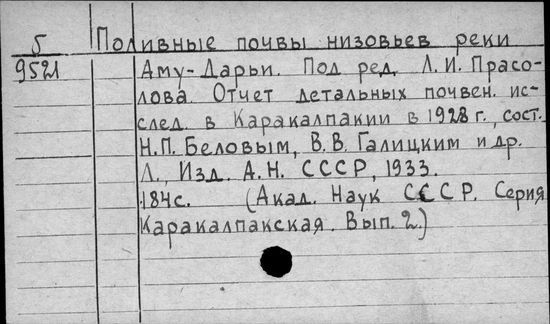 5 Поливные почвы низовьев реки
9521 Аму-Дарьи. Под ред. Л.И. Прасо-
лова. Отчет детальных почвен. ис-
след. в Каракалпакии в 1928 г., сост.
Н.П. Беловым, В.В. Галицким и др.
Л., Изд. А.Н. СССР, 1933.
184с. (Акад. Наук СССР. Серия
Каракалпакская. Вып. 2.)